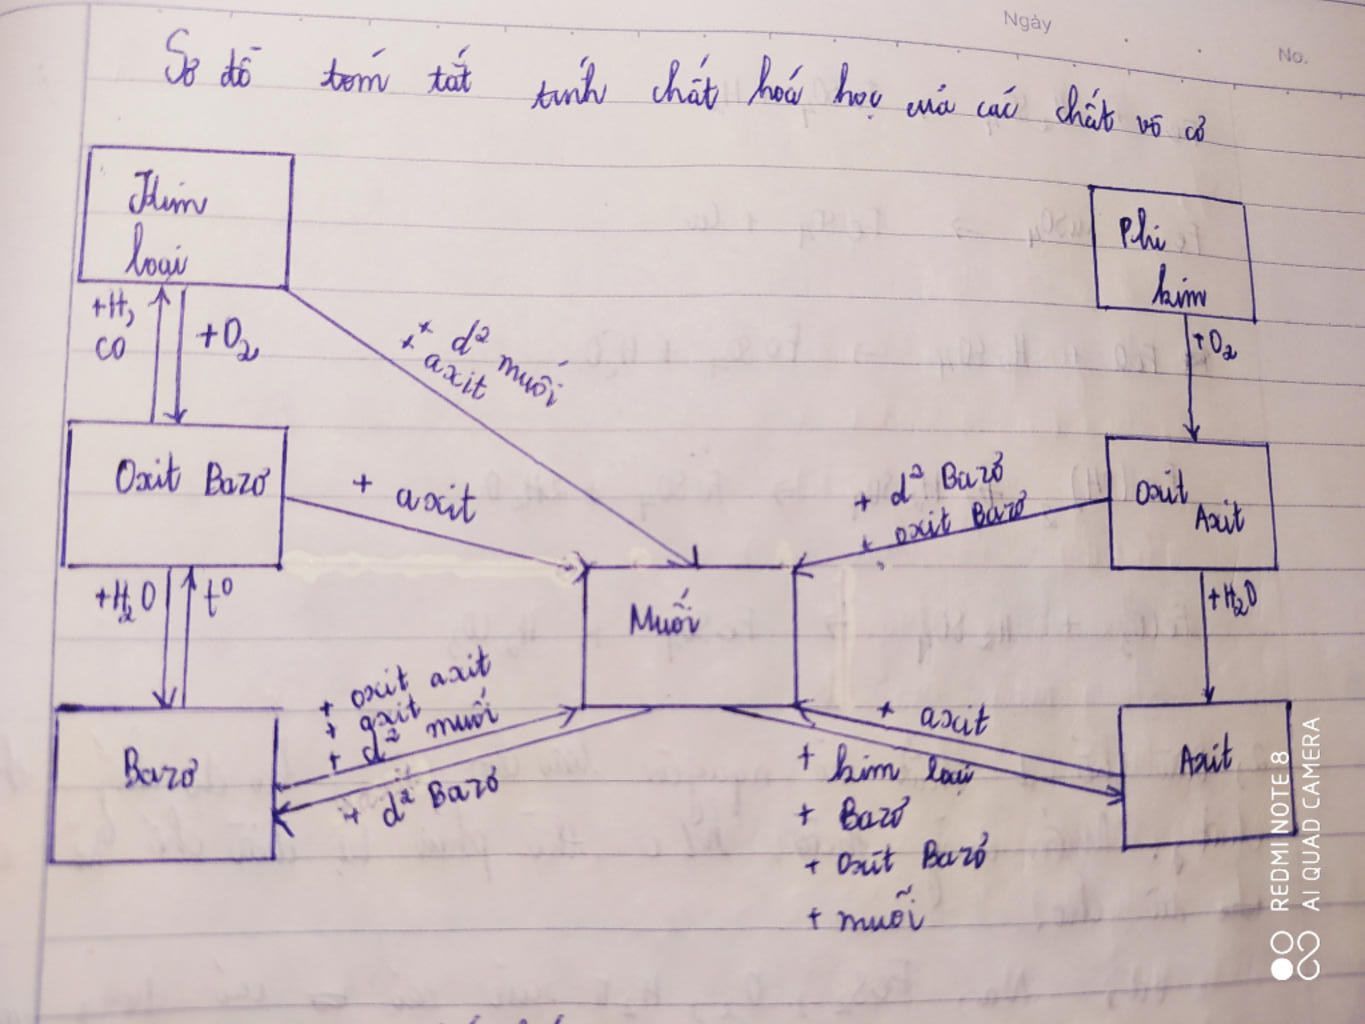 Ngày
No.
Sơ đồ tóm tắt tính chất hoá học của các chất vô cơ
Kim
loại
Phi
kim
+H2
CO
+O2
+ d² muối
+ axit
+O2
Oxit Bazơ
+ axit
+ d² Bazơ
+ oxit Bazơ
Oxit
Axit
+H2O
t°
Muối
+H2O
+ oxit axit
+ axit
+ d² muối
+ d² Bazơ
Bazơ
+ axit
+ kim loại
+ Bazơ
+ Oxit Bazơ
+ muối
Axit
REDMI NOTE 8
AI QUAD CAMERA